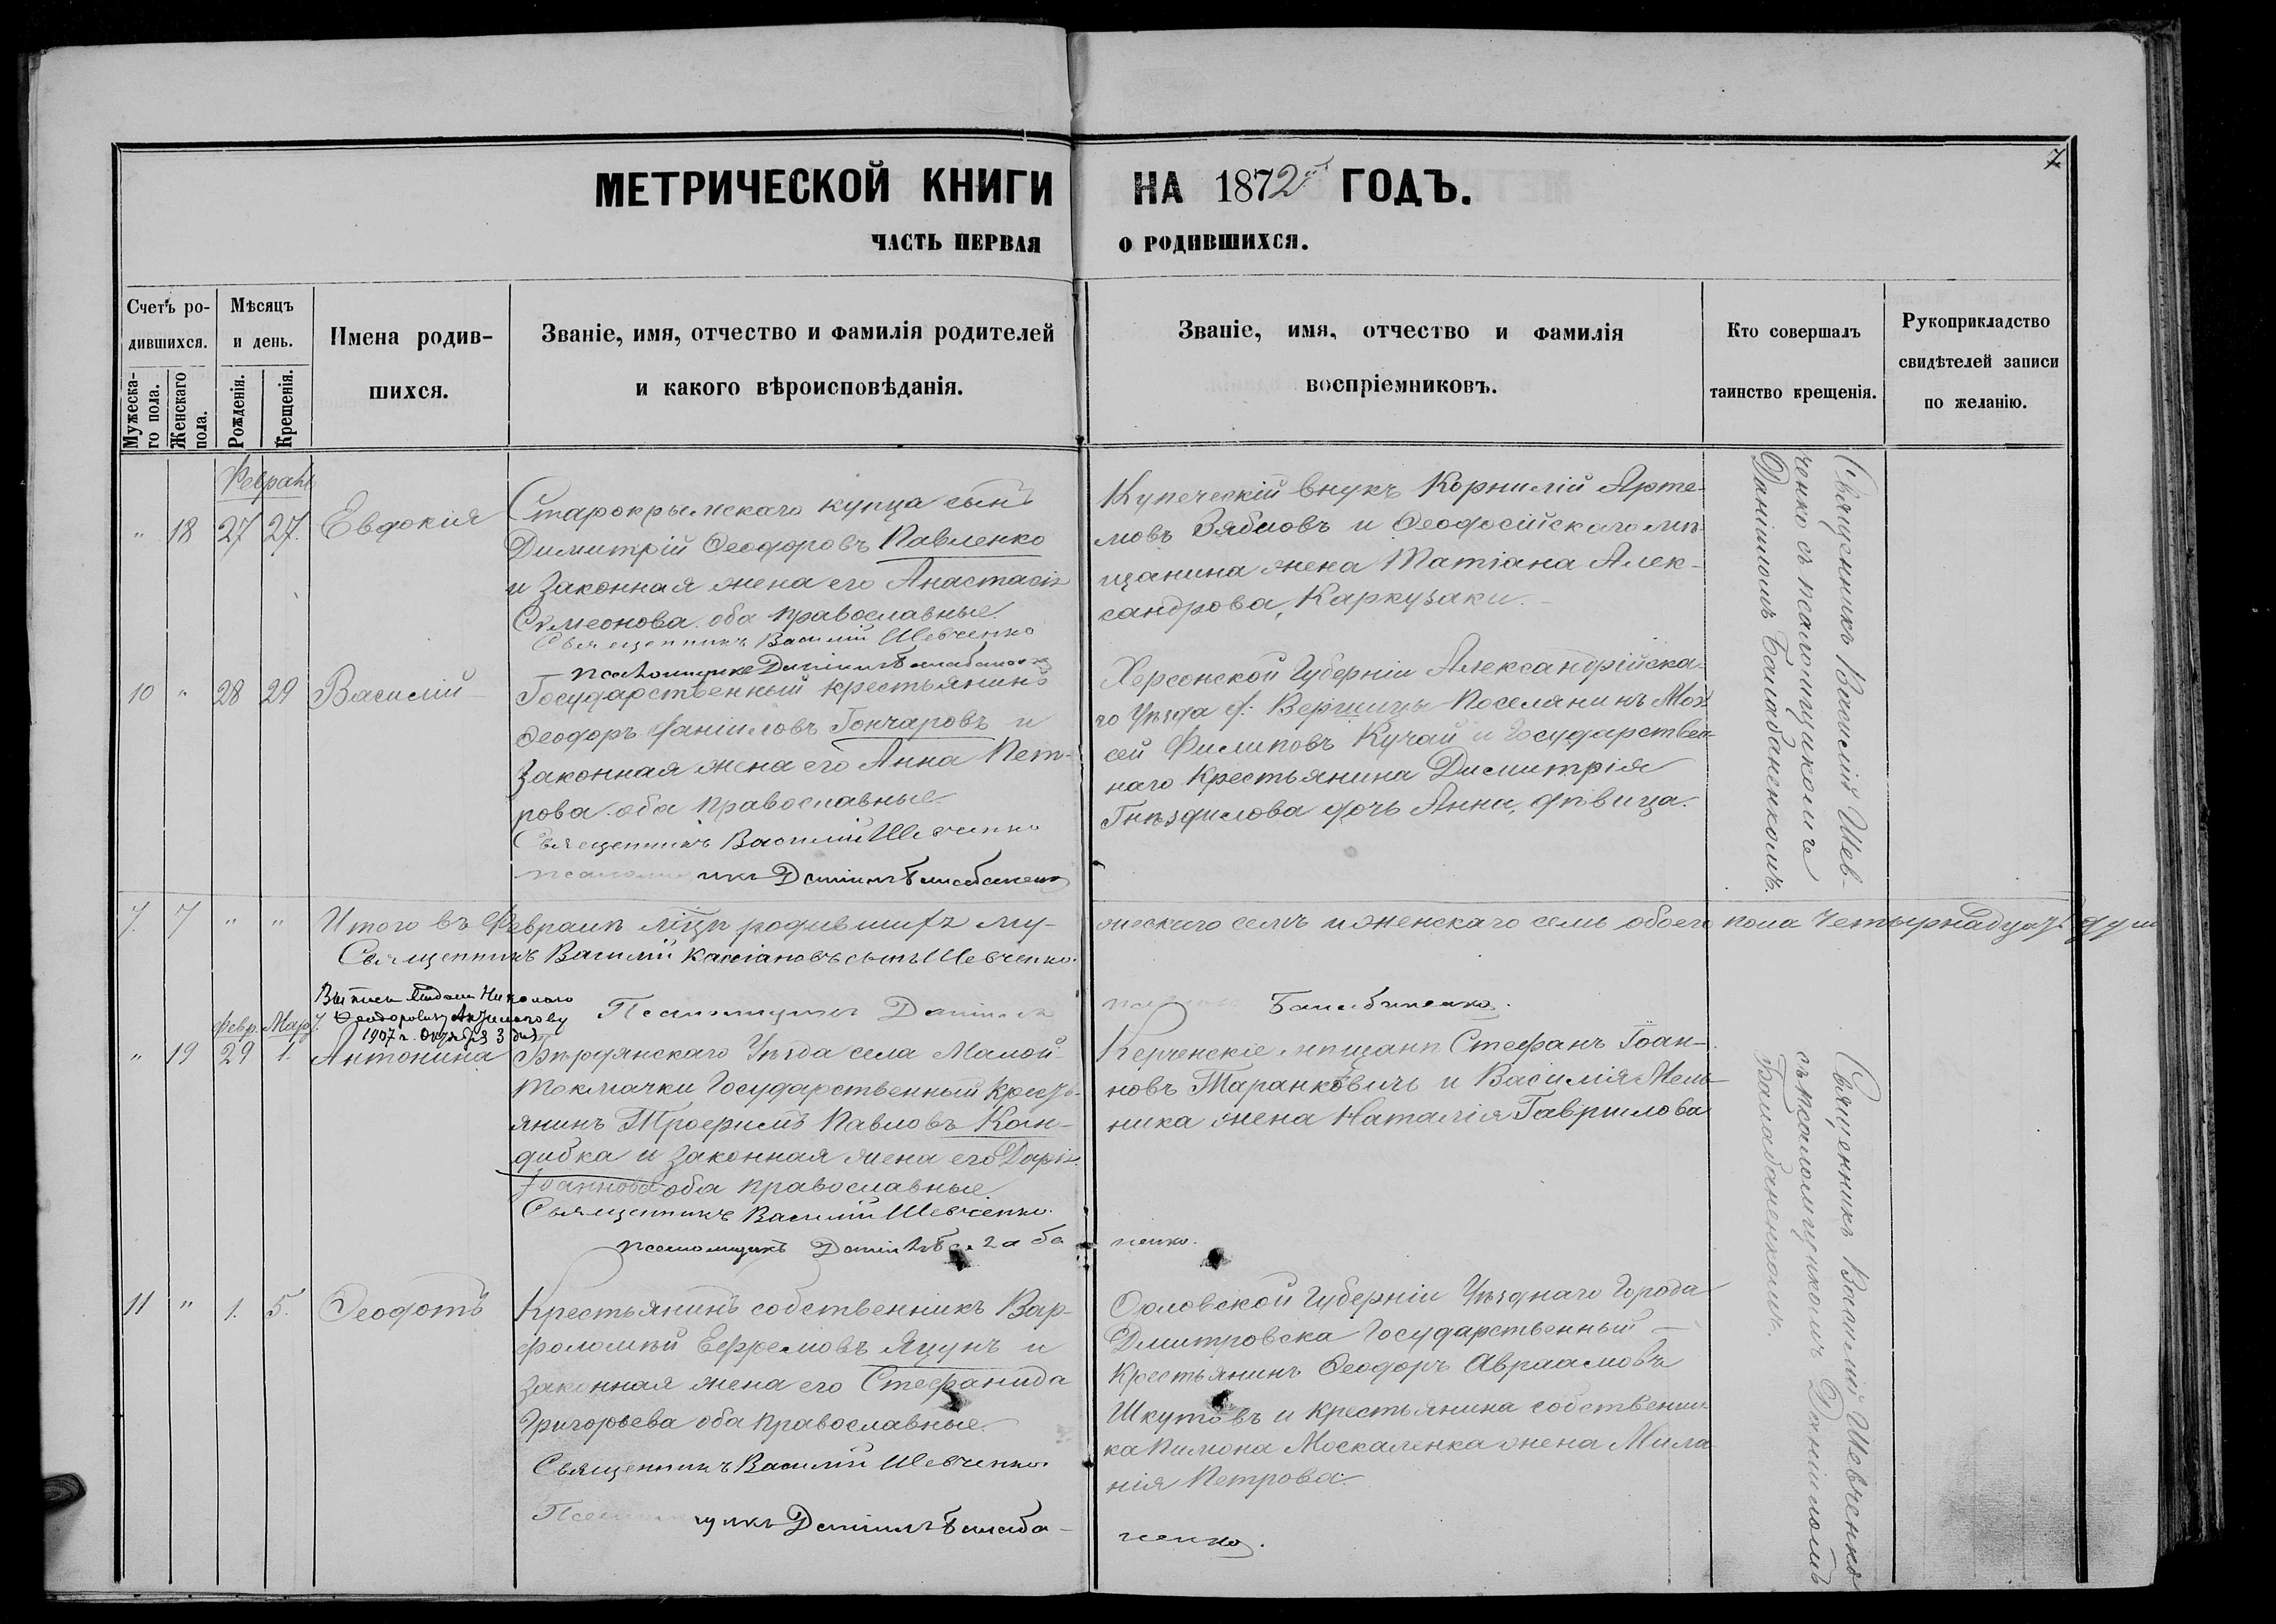 7
МЕТРИЧЕСКОЙ КНИГИ НА 1872й ГОДЪ.
ЧАСТЬ ПЕРВАЯ О РОДИВШИХСЯ.
Счетъ ро-
дившихся.
Мужеска-
го пола.
Женскаго
пола.
Мѣсяцъ
и день.
Рожденія.
Крещенія.
Имена родив-
шихся.
Званіе, имя, отчество и фамилія родителей
и какого вѣроисповѣданія.
Званіе, имя, отчество и фамилія
воспріемниковъ.
Кто совершалъ
таинство крещенія.
Рукоприкладство
свидѣтелей записи
по желанію.
Февраль
" 18 27 27. Евдокія
Старокрымскаго купца сынъ
Димитрій Ѳеодоровъ Павленко
и законная жена его Анастасія
Симеонова. оба православные.
Священникъ Василій Шевченко
псаломщикъ Даніилъ Балабаненко
Купеческій внукъ Корнилій Арте-
мовъ Зябловъ и Ѳеодосійскаго мѣ-
щанина жена Татіана Алек-
сандрова, Каркузаки.
Священникъ Василій Шев-
ченко съ псаломщикомъ
Даніиломъ Балабаненкомъ.
10 " 28 29 Василій
Государственный крестьянинъ
Ѳеодоръ Даніиловъ Гончаровъ и
законная жена его Анна Пет-
рова. оба православные.
Священникъ Василій Шевченко
псаломщикъ Даніилъ Балабаненко
Херсонской Губерніи Александрійска-
го Уѣзда с: Вершицы Поселянинъ Мои
сей Филиповъ Кучай и Государствен-
наго Крестьянина Димитрія
Гнѣздилова дочь Анна, дѣвица.
7. 7 " " Итого въ Февралѣ мѣцѣ родившихъ му-
жескаго семь и женскаго семь обоего пола четырнадцать душ
Священникъ Василій Кассіановъ сынъ Шевченко.
Псаломщикъ Даніилъ
Балабаненко.
Выпись выдана Николаю
Ѳеодоровичу
1907 г. Октября 3 дня
Февр. Март.
" 19 29 1. Антонина
Бердянскаго Уѣзда села Малой-
Токмачки Государственный Кресть-
янинъ Трофимъ Павловъ Кан-
дибка и законная жена его Дарія
Іоаннова оба православные
Священникъ Василій Шевченко.
псаломщикъ Даніилъ Балаба
ненко.
Керченскіе мѣщане Стефанъ Іоан-
новъ Таранковичъ и Василія Мель-
ника жена Наталія Гаврилова
Священникъ Василій Шевченко
съ псаломщикомъ Даніиломъ
Балабаненкомъ.
11 " 1. 5. Ѳеодотъ
Крестьянинъ собственникъ Вар-
фоломѣй Ефремовъ Яцунъ и
законная жена его Стефанида
Григорьева оба православные.
Священникъ Василій Шевченко.
Псаломщикъ Даніилъ Балаба-
ненко.
Орловской Губерніи Уѣзднаго Города
Дмитровска Государственный
Крестьянинъ Ѳеодоръ Авраамовъ
Шкутовъ и крестьянина собственни
ка Пимона Москаленка жена Мила
нія Петрова.